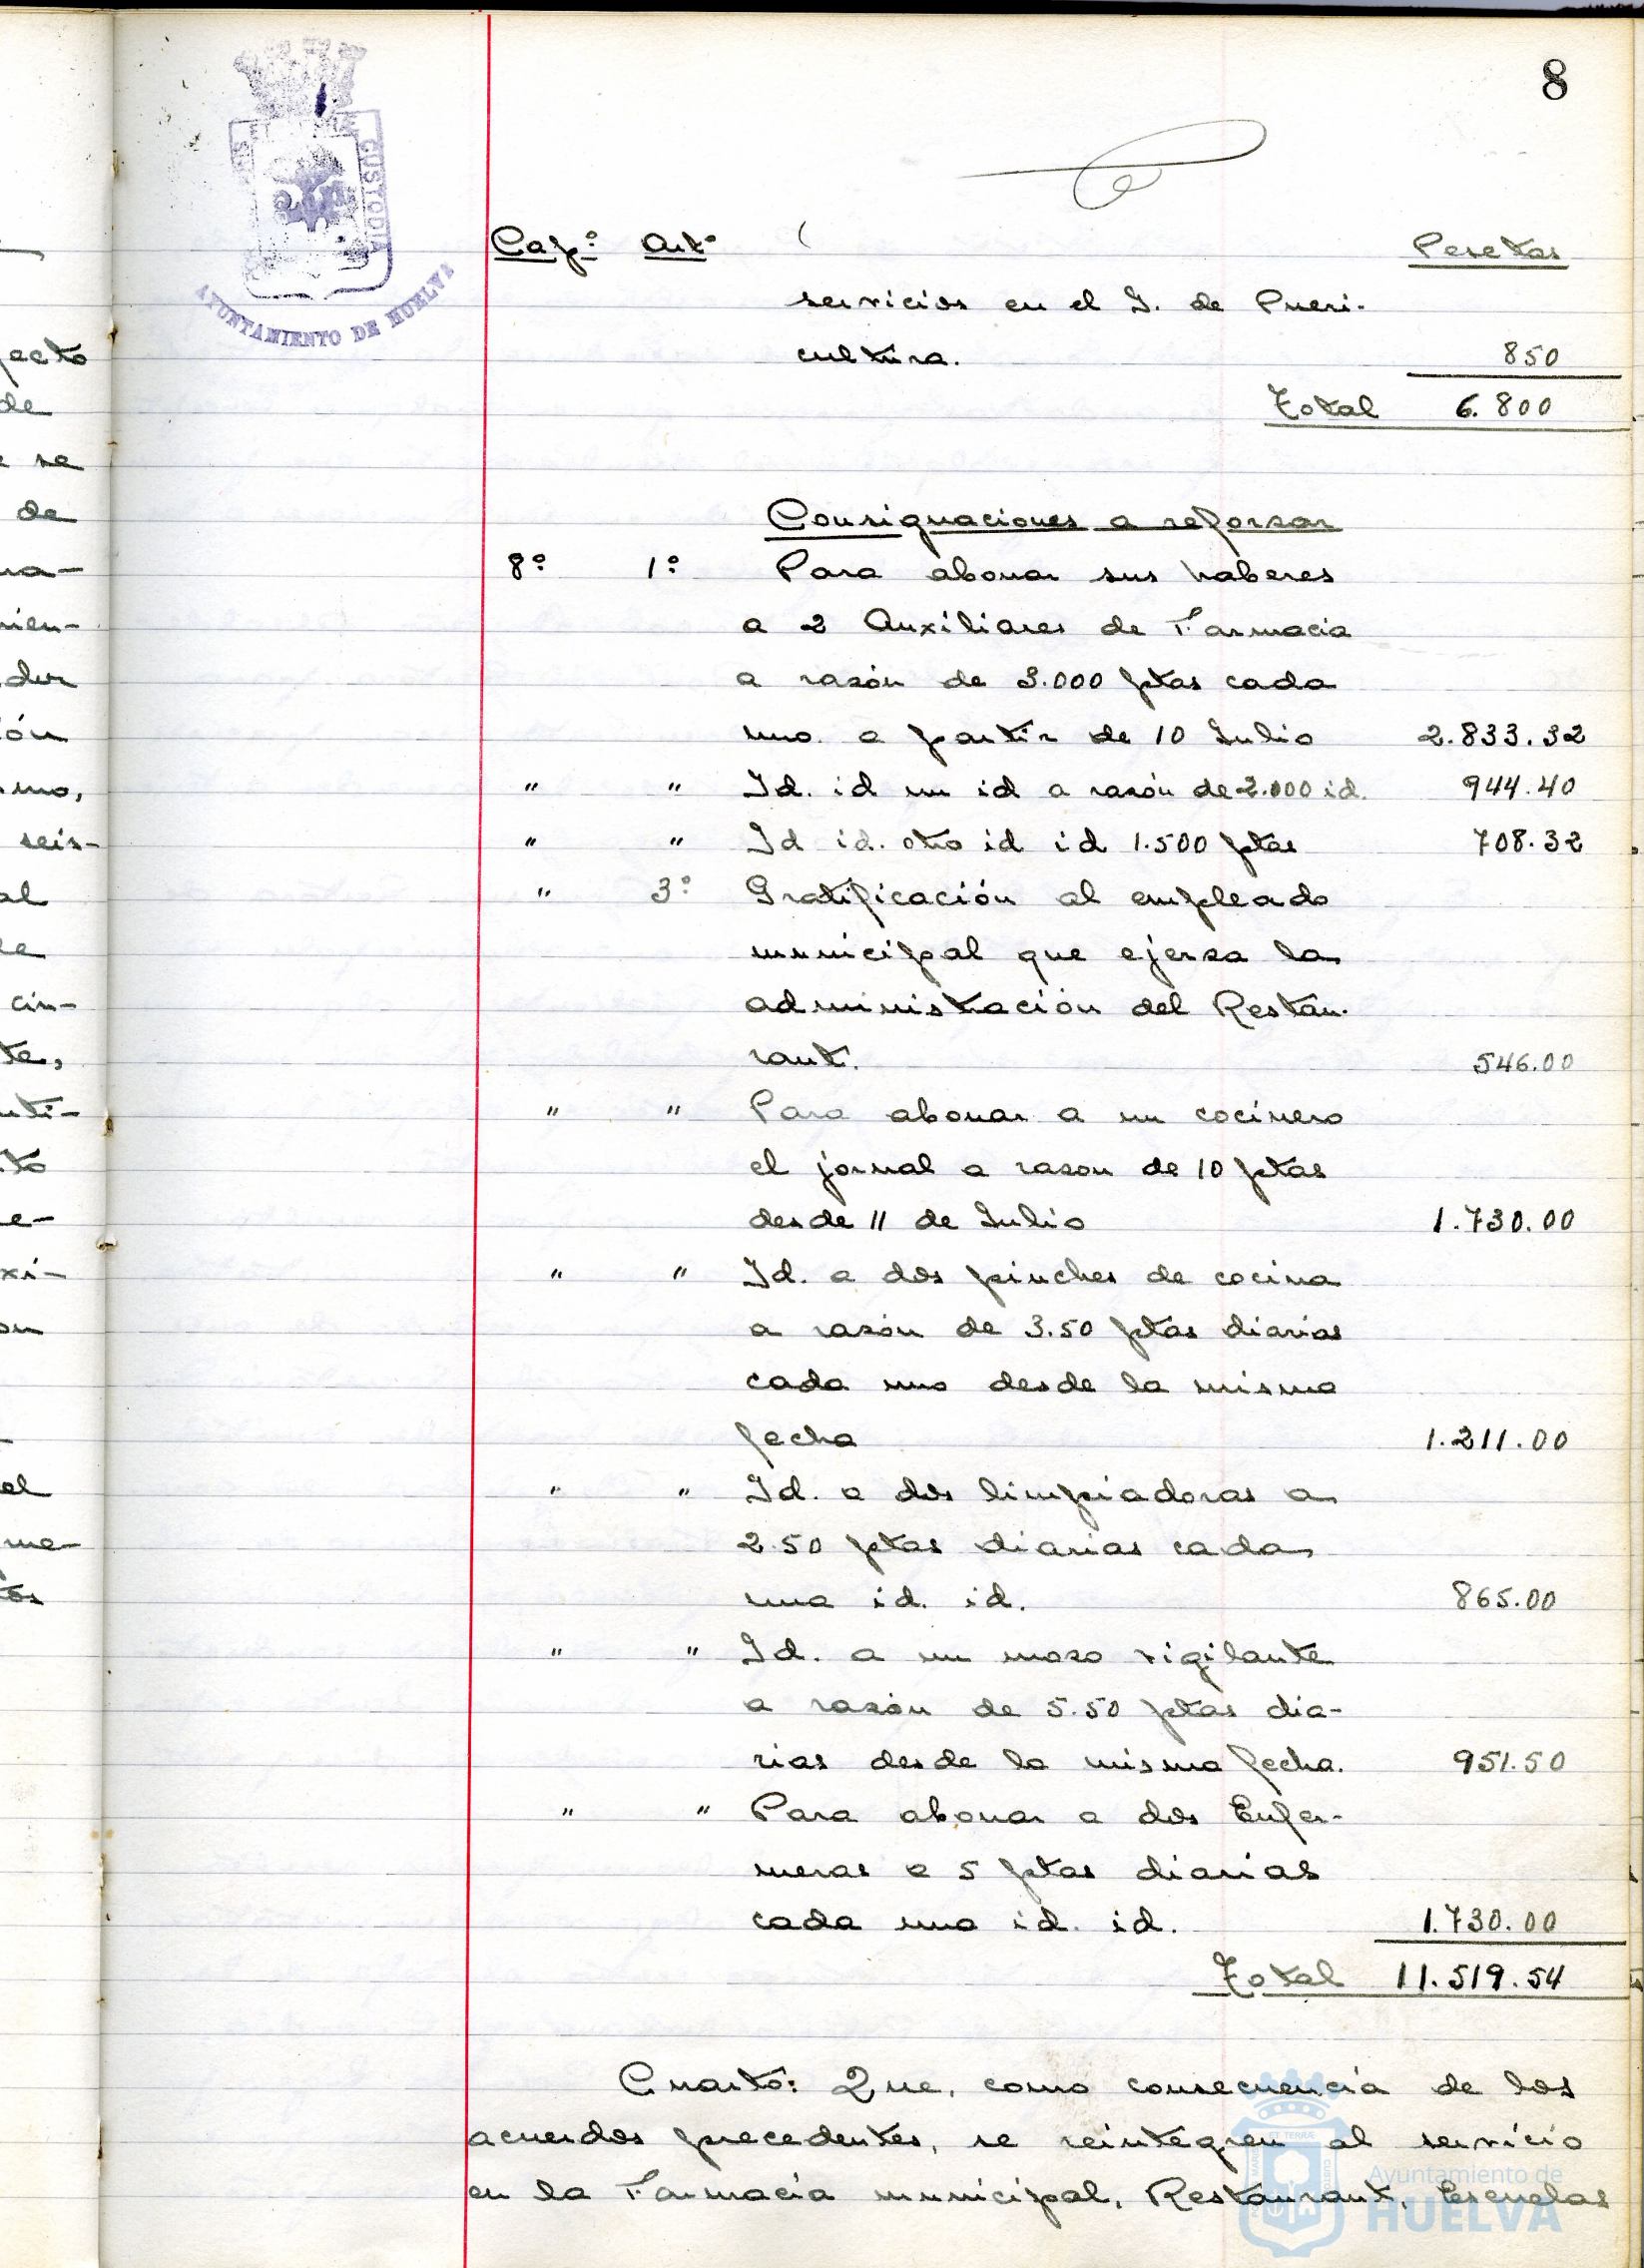 8
CUSTODIA
AYUNTAMIENTO DE HUELVA
Cap.º Art.º Pesetas
servicios en el I. de Pueri-
cultura. 850
Total 6.800
Consignaciones a reforzar
8.º 1.º Para abonar sus haberes
a 2 Auxiliares de Farmacia
a razón de 3.000 ptas cada
uno a partir de 10 Julio 2.833.32
" " Id. id un id a razón de 2.000 id. 944.40
" " Id id. otro id id 1.500 ptas 708.32
" 3.º Gratificación al empleado
municipal que ejerza la
administración del Restau-
rant. 546.00
" " Para abonar a un cocinero
el jornal a razon de 10 ptas
desde 11 de Julio 1.730.00
" " Id. a dos pinches de cocina
a razón de 3.50 ptas diarias
cada uno desde la misma
fecha 1.211.00
" " Id. a dos limpiadoras a
2.50 ptas diarias cada
una id. id. 865.00
" " Id. a un mozo vigilante
a razón de 5.50 ptas dia-
rias desde la misma fecha. 951.50
" " Para abonar a dos Enfer-
meras a 5 ptas diarias
cada una id. id. 1.730.00
Total 11.519.54
Cuarto: Que, como consecuencia de los
acuerdos precedentes, se reintegren al servicio
en la Farmacia municipal, Restaurant, Escuelas
Ayuntamiento de
HUELVA
pecto
de
se
de
na-
mien-
der
ión
mo,
seis-
al
cin-
te,
nti-
to
e-
xi-
on
el
me-